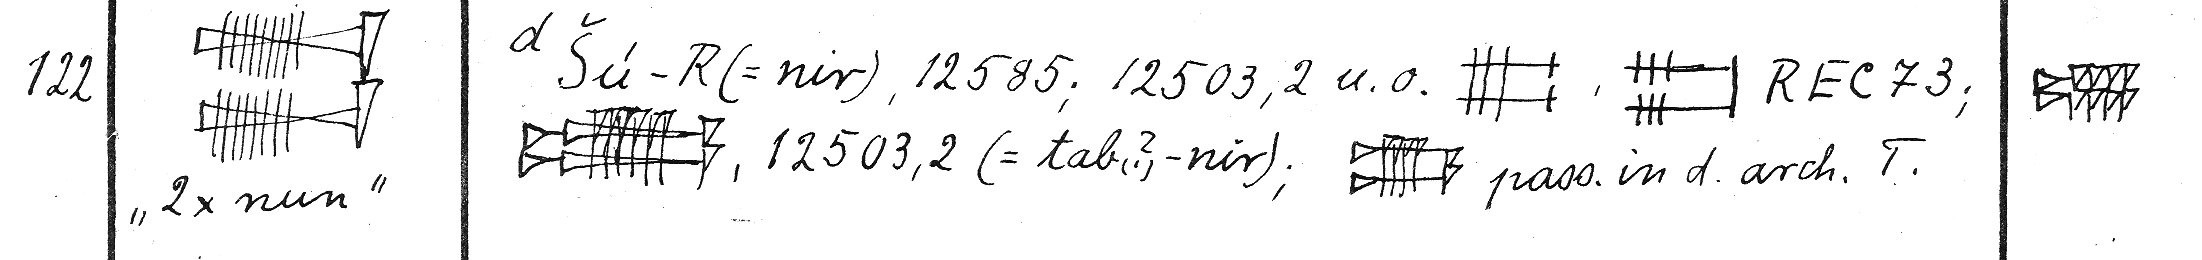 122
ᵈŠú-R(= nir), 12585; 12503,2 u. o. , REC 73;
, 12503,2 (= tab(?)-nir); pass. in d. arch. T.
„2x nun“